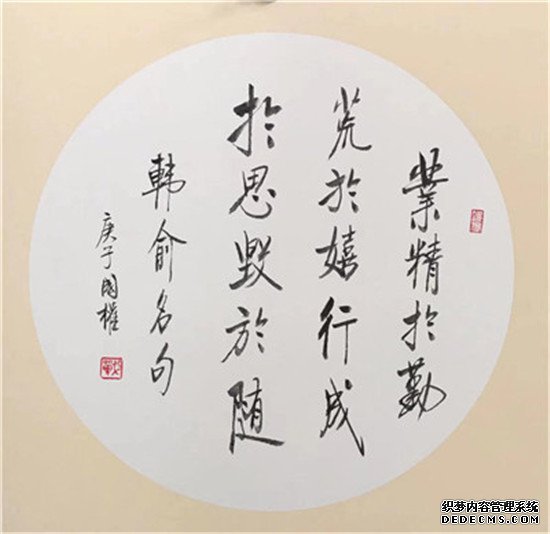 業精於勤
荒於嬉行成
於思毀於随
韩俞名句
庚子国權
织梦内容管理系统
DEDECMS.COM